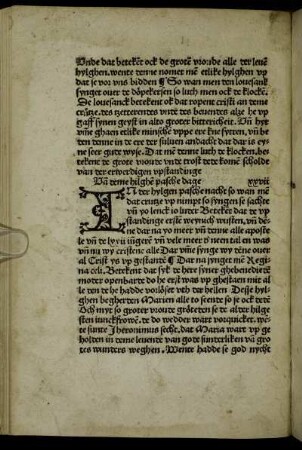 Vnde dat beteket ock de grote vroude alle der leuē
hylghen. wente denne nomet mē etlike hylghen vp
dat se vor vns bidden ¶ So wan men den louesank
synget ouer de döpekersen so luth men ock de klockē
De louesanck betekent ok dat ropent cristi an deme
crütze. des ertzeredes vnde des heuendes alze he vp
gaff synen geyst in alto groter bittericheit. Vn̄ byt
vm̄e ghaen etlike minsche vppe ere kne fyren. vn̄ he
ten denne in de ere der suluen andacht dat dar is ey
ne seer gute wyse. Dat mē denne luth de klocken. be
tekent de grote vroude vnde trost der komē scholde
van der erwerdigen vpstandinge
Vā deme hilghē pasche dage xxvii
IN der hylgen pasche nacht so wan mē
dat crutze vp nimpt so syngen se sachte
vn̄ yo lenck io luder Beteket dat de vp
standinge erste weynich wusten. vn̄
ne dar na yo meer vn̄ denne alle aposte
le vn̄ de lxxii iūgerē vn̄ vele meer
nū al Crist ys vp gestandē ¶ Dar na synget mē Regi
na celi. Betekent dat syk de here syner ghebenedieten
moder openbarde do he erst was vp ghestaen mit al
le den de he hadde vorlöset vth der hellen Desse hyl
ghen begherden Marien alle to seende so se ock dede
Och myt so groter vroude grötedē se de alder hilge
sten iunckfrowē. de do wedder wart vorquicket. wē
te sunte Jheronimus secht. dat Maria wart vp ge
holden in deme leuende van gode sunderliken vā gro
tes wunders weghen. Wente hadde se god nycht